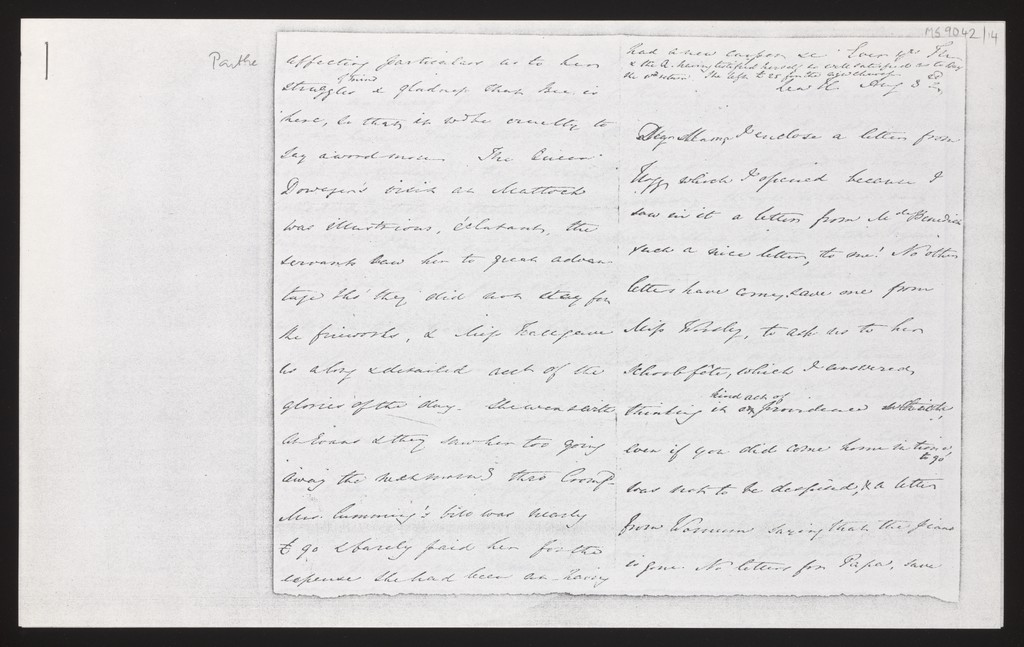 MS 9042/14
Parthe
affecting particulars as to her
struggles of mind & gladness that she is
here, so that it wd be cruelty to
say a word more. The Queen
Dowager's visit at Matlock
was illustrious, éclatant, the
servants saw her to great advan
tage tho' they did not stay for
the fireworks, & Miss
us a long & detailed acct of the
glories of the day. She went with
& they saw her too going
away the next morng thro' Cromfd
Mrs. Cumming's was nearly
to go & barely paid her for the
expense she had been at having
had a new &c. Ever yrs
& the Q. having testified herself so well satisfied as to
the The left £25 for the
Lea H. Aug 3
Dear Mama I enclose a letter from
which I opened because I
saw in it a letter from
such a nice letter, to me! No other
letters have come, save one from
Miss to ask us to her
School fête, which I answered,
thinking it a kind act of Providence
even if you did come home in time to go
was not to be despised, & a letter
from saying that the piano
is gone. No letters for Papa, save